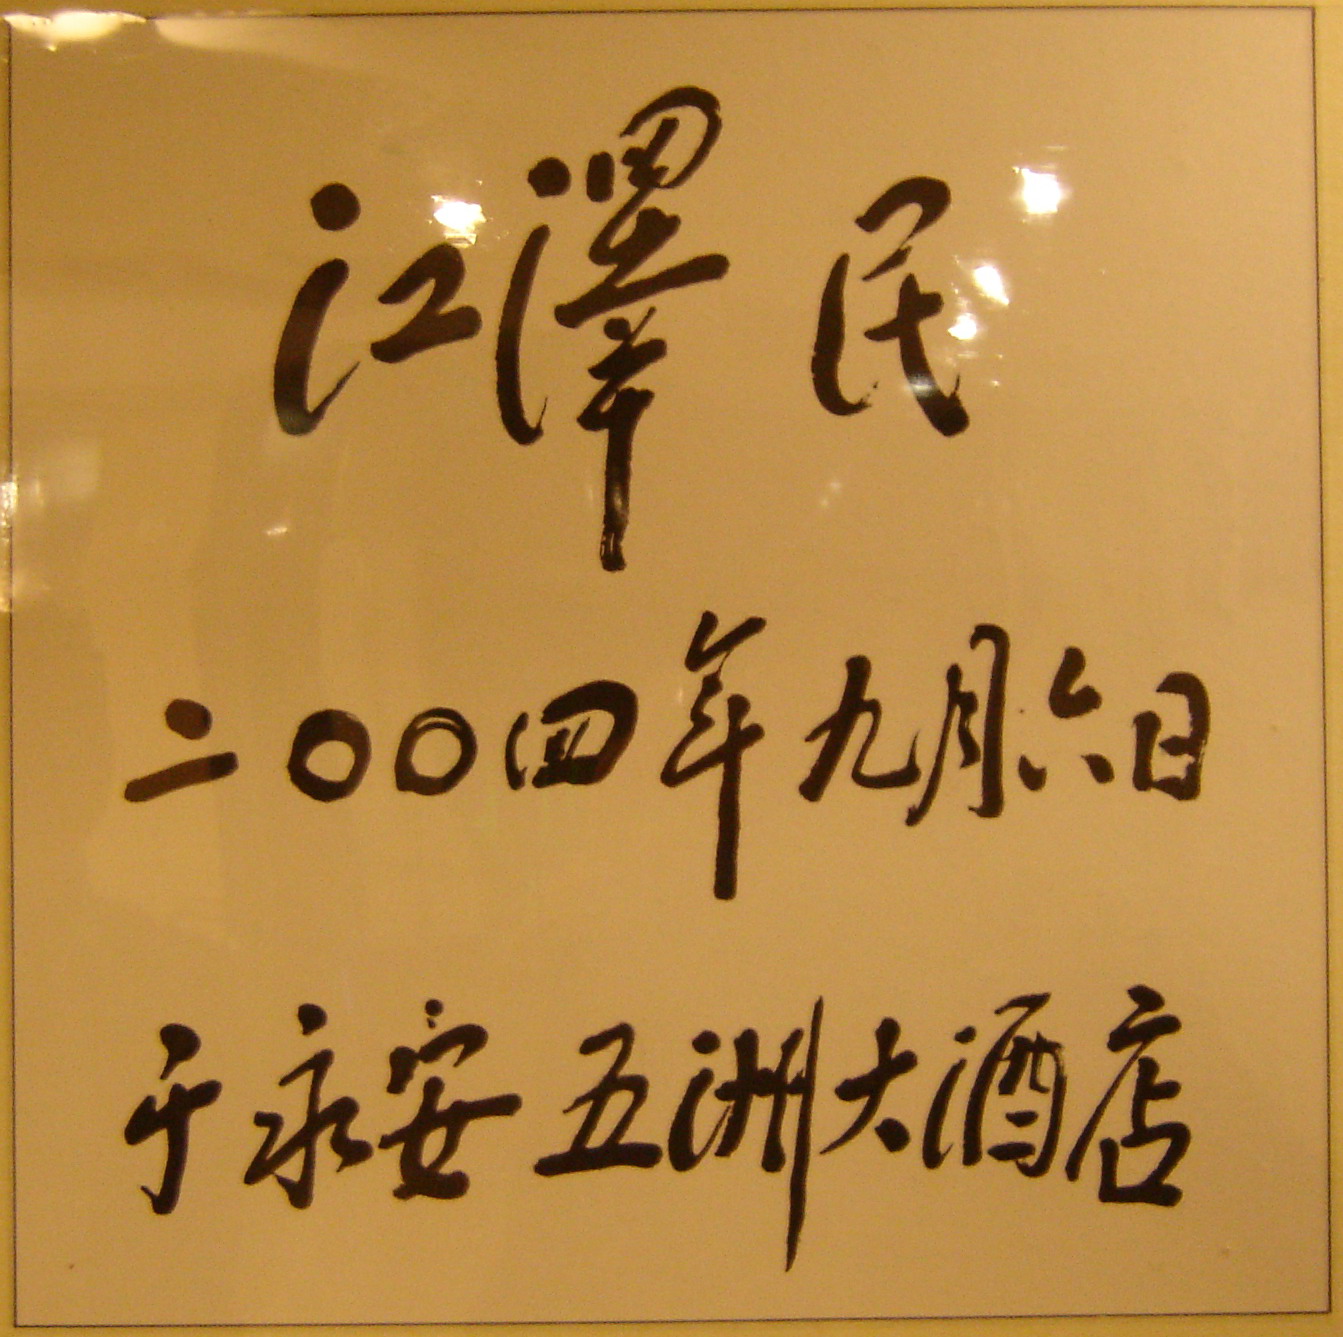 江澤民
二〇〇四年九月六日
于永安五洲大酒店